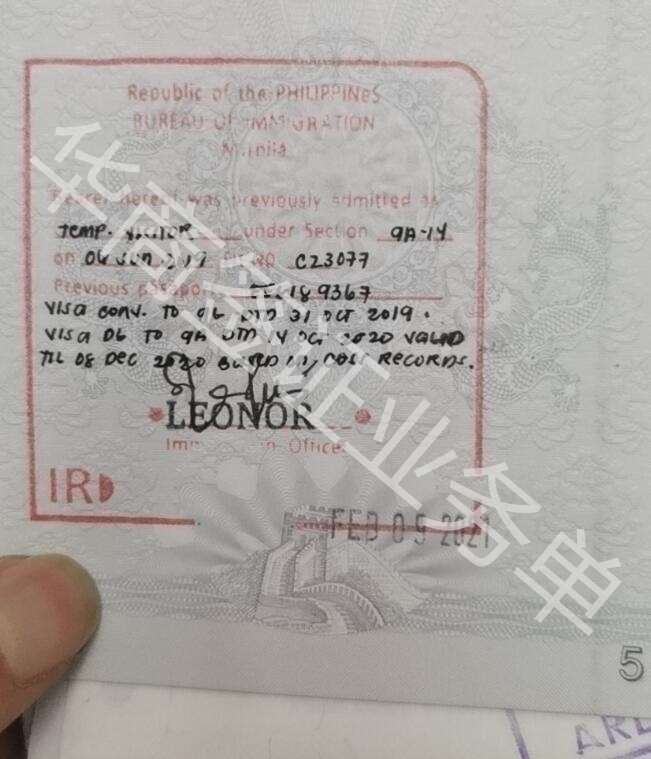 Republic of the PHILIPPINES
BUREAU OF IMMIGRATION
Manila
hereof was previously admitted as
TEMP. VISITOR under Section 9A-14
on 06 JUN 2019 C23077
Previous 189367
VISA CONV. TO 9G DTD 31 OCT 2019.
VISA TO 9A DTD 14 OCT 2020 VALID
TIL 08 DEC 2020 RECORDS.
LEONOR
Officer
IRD
FEB 05 2021
5
华商签证业务单